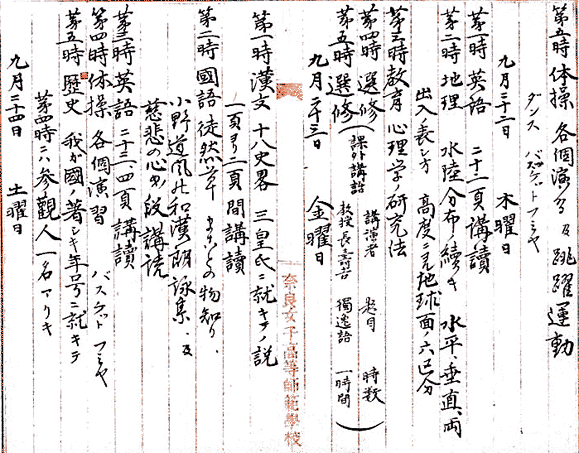 第五時 体操 各個演習及跳躍運動
ダンス バスケットフミヤ
九月二十二日 木曜日
第一時 英語 二十二頁講讀
第二時 地理 水陸分布ノ續キ 水平、垂直、両
出入ノ表シ方 高度ニ見地球面ノ六区分
第三時 教育 心理学ノ研究法
第四時 選修(課外講話 講演者 題目 時数
第五時 選修 教授長壽吉 獨逸語 一時間)
九月二十三日 金曜日
奈良女子高等師範學校
第一時 漢文 十八史畧 三皇氏ニ就キテノ説
一頁ヨリ二頁間講讀
第二時 國語 徒然草 の物知り、
小野道風の和漢朗詠集、及
慈悲の心の段講読
第三時 英語 二十三、四頁 講讀
第四時 体操 各個演習 バスケットフミヤ
第五時 歴史 我が國ノ著シキ年号ニ就キテ
第四時ニハ参觀人一名アリキ
九月二十四日 土曜日